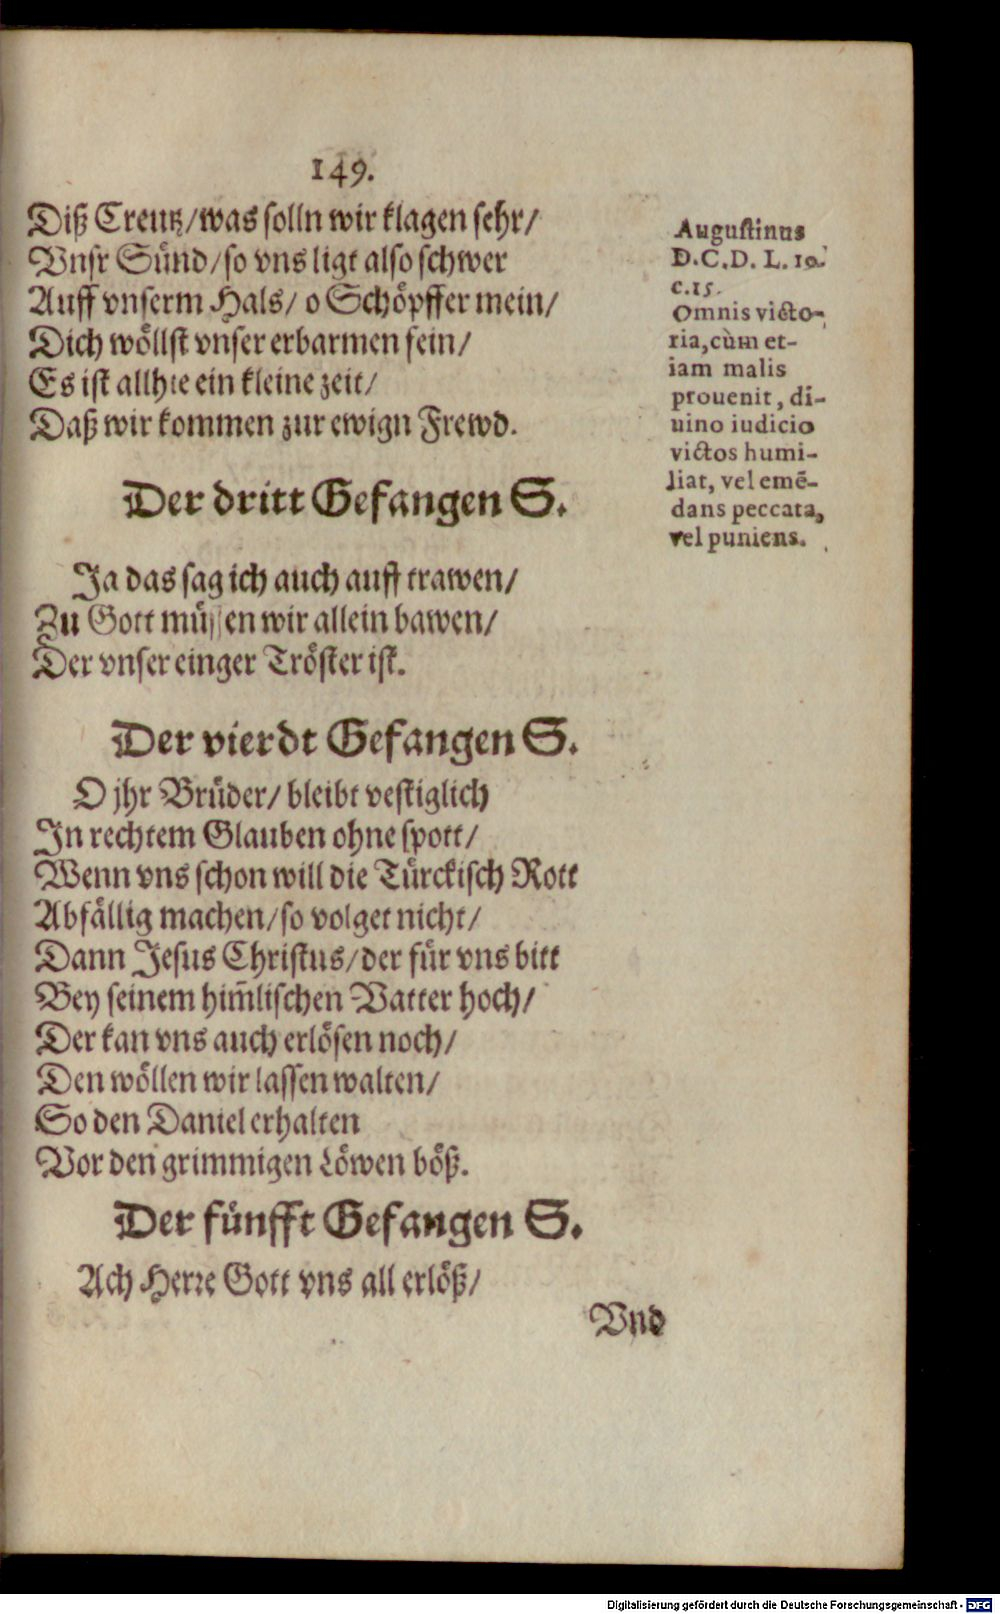 149.
Diß Creutz/was solln wir klagen sehr/
Vnsr Sünd/so vns ligt also schwer
Auff vnserm Hals/ o Schöpffer mein/
Dich wöllst vnser erbarmen sein/
Es ist allhie ein kleine zeit/
Daß wir kommen zur ewign Frewd.
Augustinus
D.C.D. L. 19.
c.15.
Omnis victo-
ria,cùm et-
iam malis
prouenit, di-
uino iudicio
victos humi-
liat, vel emē-
dans peccata,
vel puniens.
Der dritt Gefangen S.
Ja das sag ich auch auff trawen/
Zu Gott müssen wir allein bawen/
Der vnser einger Tröster ist.
Der vierdt Gefangen S.
O jhr Brüder/ bleibt vestiglich
In rechtem Glauben ohne spott/
Wenn vns schon will die Türckisch Rott
Abfällig machen/so volget nicht/
Dann Jesus Christus/der für vns bitt
Bey seinem him̃lischen Vatter hoch/
Der kan vns auch erlösen noch/
Den wöllen wir lassen walten/
So den Daniel erhalten
Vor den grimmigen Löwen böß.
Der fünfft Gefangen S.
Ach Herre Gott vns all erlöß/
Vnd
Digitalisierung gefördert durch die Deutsche Forschungsgemeinschaft - DFG